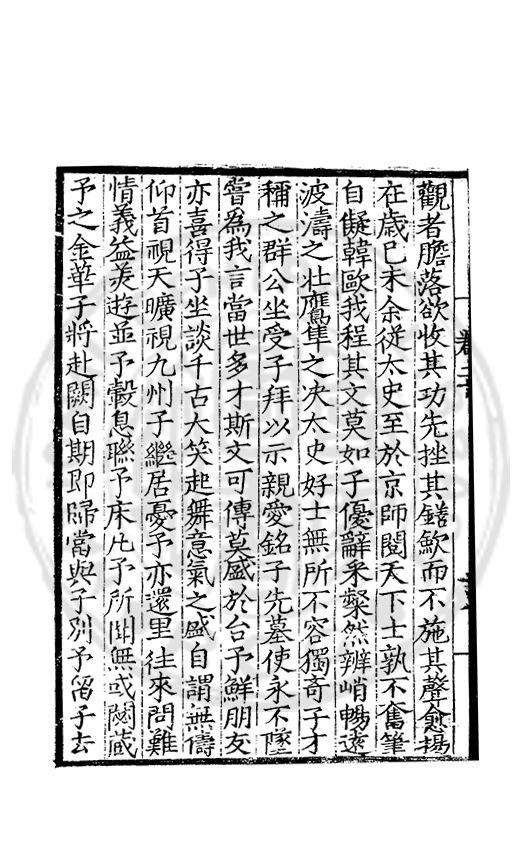 觀者膽落欲收其功先挫其鐥歛而不施其聲愈揚
在歲己未余從太史至於京師閱天下士孰不奮筆
自儗韓歐我程其文莫如子優辭采粲然辨峭暢遠
波濤之壯鷹隼之决太史好士無所不容獨奇子才
稱之群公坐受子拜以示親愛銘子先墓使永不墜
嘗爲我言當世多才斯文可傳莫盛於台予鮮朋友
亦喜得子坐談千古大笑起舞意氣之盛自謂無儔
仰首視天曠視九州子繼居憂予亦還里往來問難
情義益美遊並予轂息聯予床凡予所聞無或闕藏
予之金華子將赴闕自期即歸當與子別予留子去
卷二